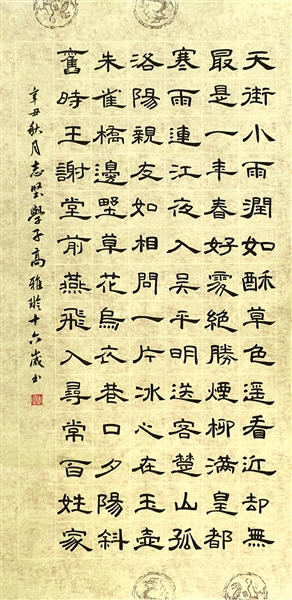 天街小雨潤如酥草色遥看近却無
最是一年春好處絕勝煙柳滿皇都
寒雨連江夜入吴平明送客楚山孤
洛陽親友如相問一片冰心在玉壺
朱雀橋邊野草花烏衣巷口夕陽斜
舊時王謝堂前燕飛入尋常百姓家
辛丑秋月志堅學子高雅玲十六歲书